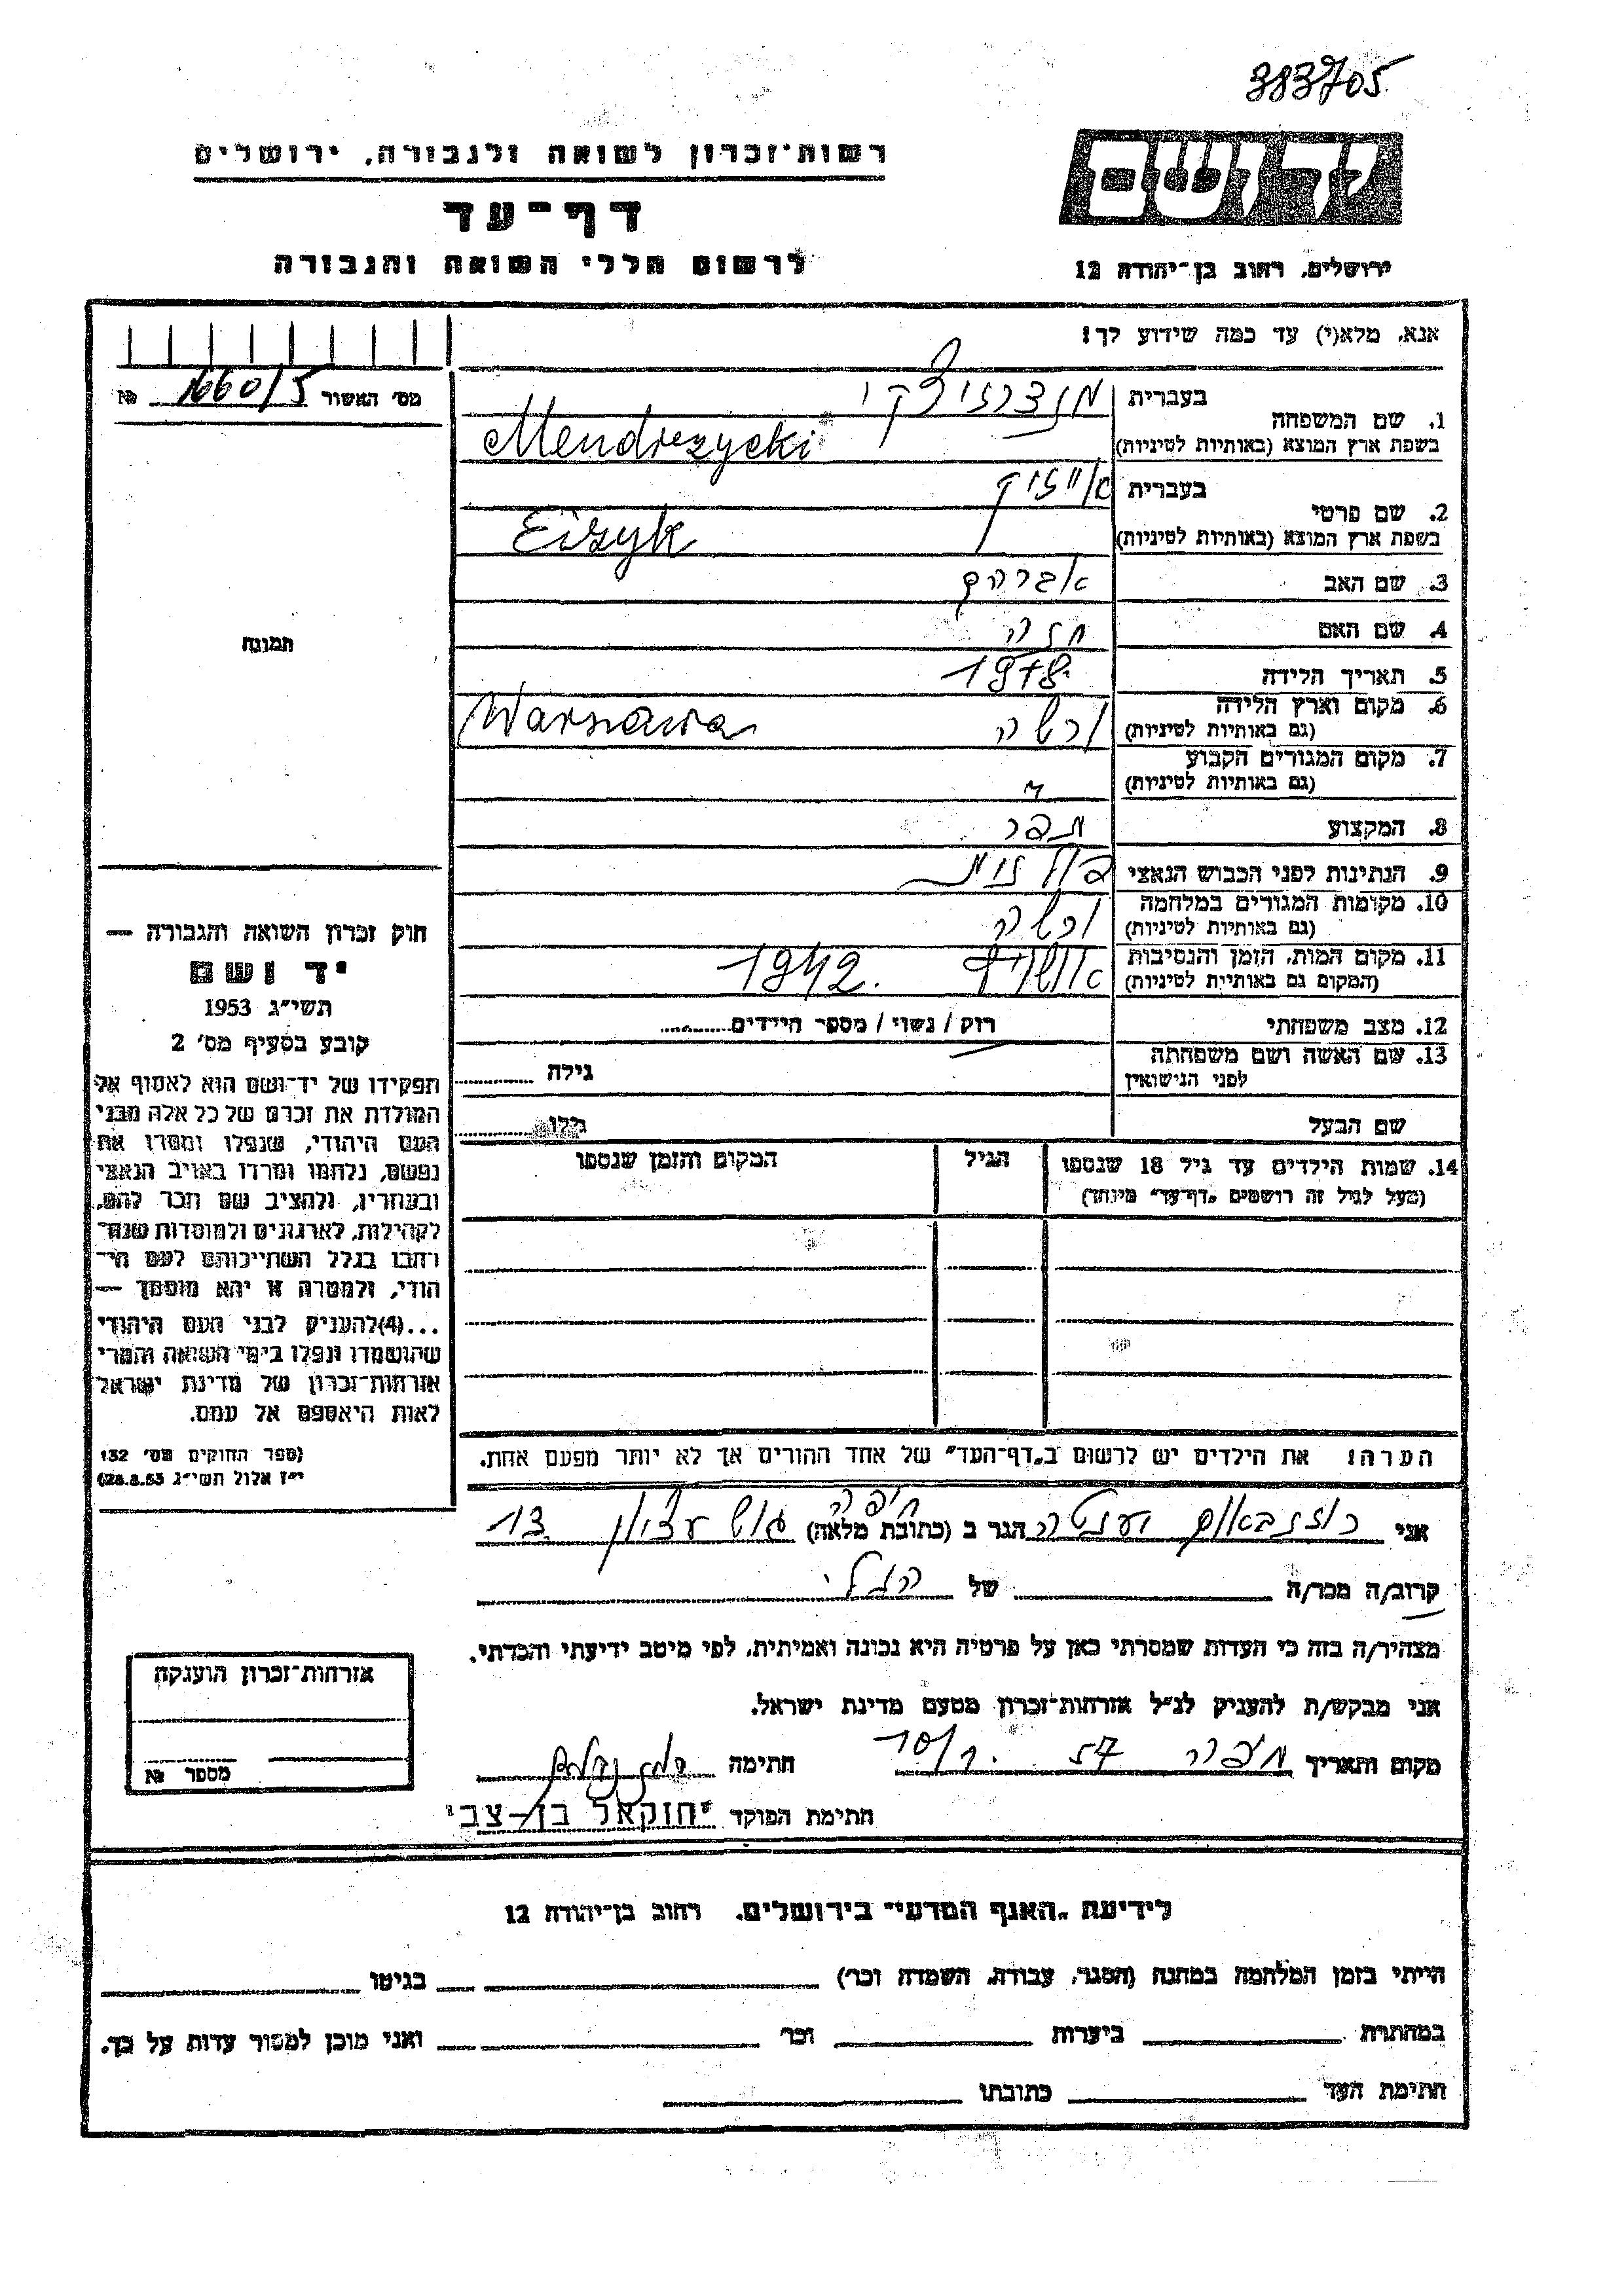 383705
יד ושם
רשות־זכרון לשואה ולגבורה, ירושלים
דף־עד
לרשום חללי השואה והגבורה
ירושלים, רחוב בן־יהודה 12
אנא, מלא(י) עד כמה שידוע לך!
מס׳ האשור 1660/5 №
1. שם המשפחה בעברית מנדרזיצקי
בשפת ארץ המוצא (באותיות לטיניות) Mendrzycki
2. שם פרטי בעברית אייזיק
בשפת ארץ המוצא (באותיות לטיניות) Eizyk
3. שם האב אברהם
4. שם האם חנה
5. תאריך הלידה
6. מקום וארץ הלידה (גם באותיות לטיניות) ורשה Warszawa
7. מקום המגורים הקבוע (גם באותיות לטיניות)
8. המקצוע
9. הנתינות לפני הכבוש הנאצי פולנית
10. מקומות המגורים במלחמה (גם באותיות לטיניות) ורשה
11. מקום המות, הזמן והנסיבות (המקום גם באותיית לטיניות) 1942.
12. מצב משפחתי רוק / נשוי / מספר הילדים
13. שם האשה ושם משפחתה לפני הנישואין גילה
שם הבעל גילו
14. שמות הילדים עד גיל 18 שנספו הגיל המקום והזמן שנספו
(מעל לגיל זה רושמים „דף־עד״ מיוחד)
הערה: את הילדים יש לרשום ב„דף־העד״ של אחד ההורים אך לא יותר מפעם אחת.
תמונה
חוק זכרון השואה והגבורה —
יד ושם
תשי״ג 1953
קובע בסעיף מס׳ 2
תפקידו של יד־ושם הוא לאסוף אל
המולדת את זכרם של כל אלה מבני
העם היהודי, שנפלו ומסרו את
נפשם, נלחמו ומרדו באויב הנאצי
ובעוזריו, ולהציב שם וזכר להם,
לקהילות, לארגונים ולמוסדות שנח־
רבו בגלל השתייכותם לעם הי־
הודי, ולמטרה זו יהא מוסמך —
...(4)להעניק לבני העם היהודי
שהושמדו ונפלו בימי השואה והמרי
אזרחות־זכרון של מדינת ישראל
לאות היאספם אל עמם.
(ספר החוקים מס׳ 132
י״ז אלול תשי״ג 28.8.53)
אני רוזנבאום הגר ב (כתובת מלאה) חיפה גוש עציון 13
קרוב/ה מכר/ה של
מצהיר/ה בזה כי העדות שמסרתי כאן על פרטיה היא נכונה ואמיתית, לפי מיטב ידיעתי והכרתי.
אני מבקש/ת להעניק לנ״ל אזרחות־זכרון מטעם מדינת ישראל.
מקום ותאריך חיפה חתימה
חתימת הפוקד יחזקאל בן-צבי
אזרחות־זכרון הוענקה
מספר №
לידיעת „האגף המדעי״ בירושלים, רחוב בן־יהודה 12
הייתי בזמן המלחמה במחנה (הסגר, עבודה, השמדה וכר׳) בגיטו
במחתרת ביערות וכר׳ ואני מוכן למסור עדות על כך.
חתימת העד כתובתו